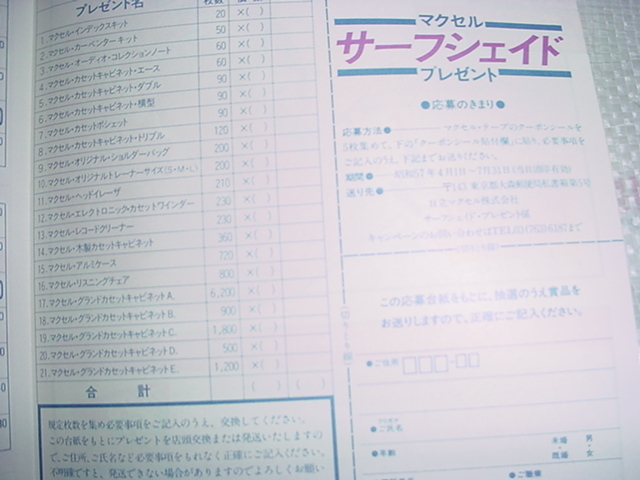 プレゼント名
枚数
1. マクセル・インデックスキット 20 ×( )
2. マクセル・カーペンターキット 50 ×( )
3. マクセル・オーディオ・コレクションノート 60 ×( )
4. マクセル・カセットキャビネット・エース 60 ×( )
5. マクセル・カセットキャビネット・ダブル 90 ×( )
6. マクセル・カセットキャビネット・横型 90 ×( )
7. マクセル・カセットポシェット 90 ×( )
8. マクセル・カセットキャビネット・トリプル 120 ×( )
9. マクセル・オリジナル・ショルダーバッグ 200 ×( )
10. マクセル・オリジナルトレーナーサイズ(S・M・L) 200 ×( )
11. マクセル・ヘッドイレーザ 210 ×( )
12. マクセル・エレクトロニック・カセットワインダー 230 ×( )
13. マクセル・レコードクリーナー 230 ×( )
14. マクセル・木製カセットキャビネット 360 ×( )
15. マクセル・アルミケース 720 ×( )
16. マクセル・リスニングチェア 800 ×( )
17. マクセル・グランドカセットキャビネットA. 6,200 ×( )
18. マクセル・グランドカセットキャビネットB. 900 ×( )
19. マクセル・グランドカセットキャビネットC. 1,800 ×( )
20. マクセル・グランドカセットキャビネットD. 500 ×( )
21. マクセル・グランドカセットキャビネットE. 1,200 ×( )
合計 ( ) ( )
規定枚数を集め必要事項をご記入のうえ、交換してください。
この台紙をもとにプレゼントを店頭交換または発送いたしますの
で、ご住所、ご氏名など必要事項をもれなく正確にご記入ください。
不明確ですと、発送できない場合がありますのでよろしくお願い
マクセル
サーフシェイド
プレゼント
●応募のきまり●
応募方法● マクセル・テープのクーポンシールを
5枚集めて、下の「クーポンシール貼付欄」に貼り、必要事項を
ご記入のうえ、下記までお送りください。
期間● 昭和57年4月1日〜7月31日(当日消印有効)
送り先● 東京都大森郵便局私書箱第5号
日立マクセル株式会社
サーフシェイド・プレゼント係
キャンペーンのお問い合わせはTEL
この応募台紙をもとに、抽選のうえ賞品を
お送りしますので、正確にご記入ください。
●ご住所
●ご氏名
●年齢 未婚・既婚 男・女
●ご職業